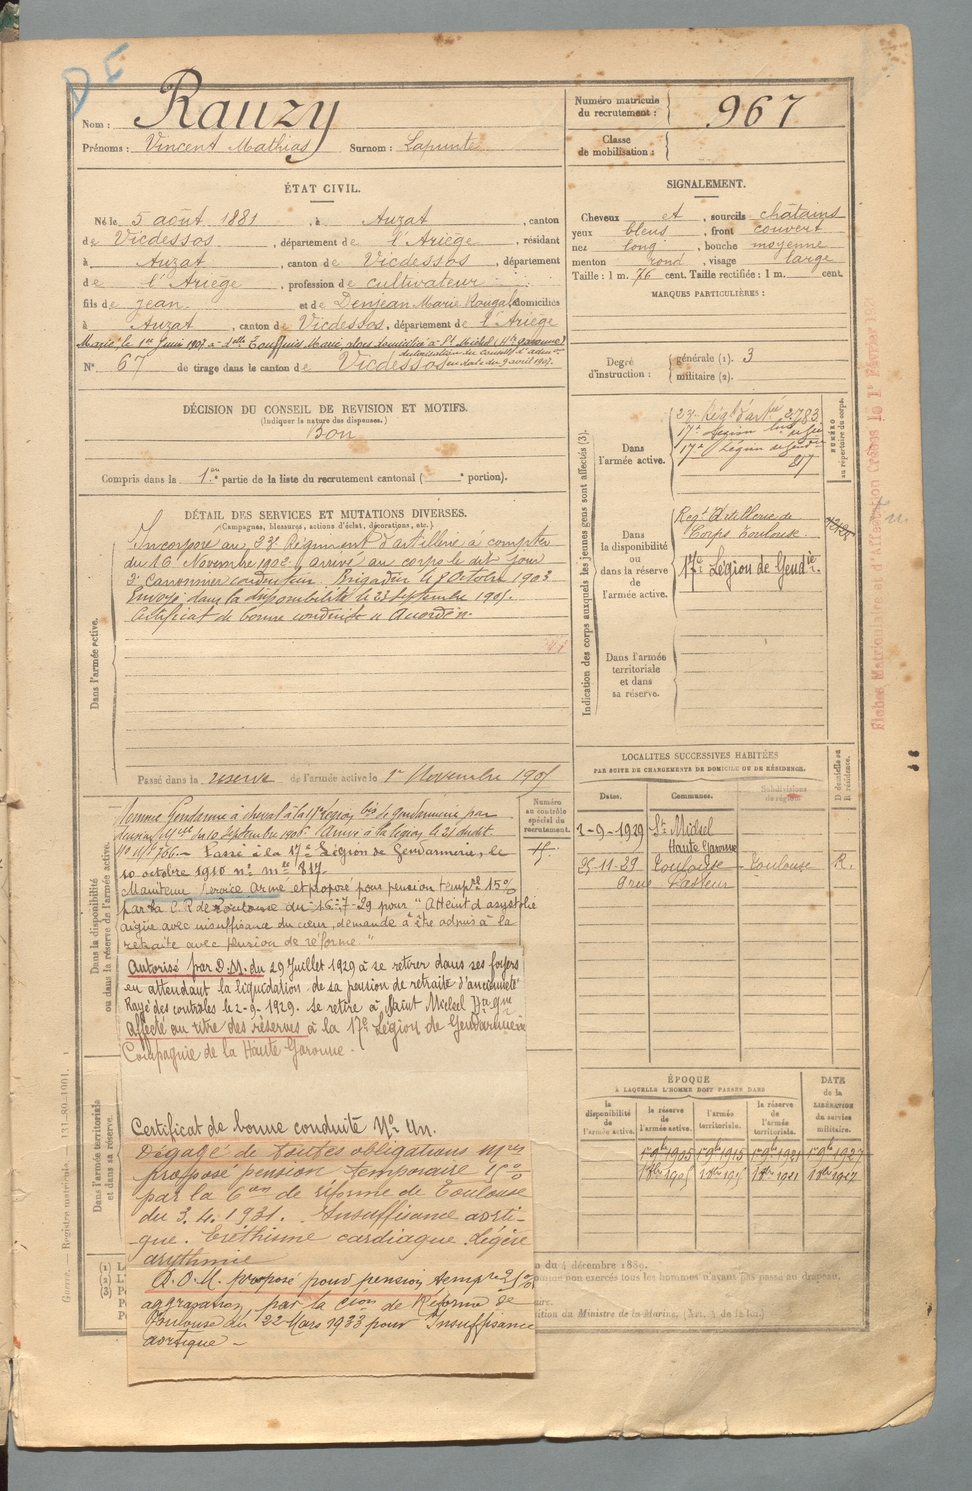 DE
Nom : Rauzy
Prénoms : Vincent Mathias Surnom : Lapunte
Numéro matricule du recrutement : 967
Classe de mobilisation :
ÉTAT CIVIL.
Né le 5 août 1881, à Auzat, canton
de Vicdessos, département de l'Ariège, résidant
à Auzat, canton de Vicdessos, département
de l'Ariège, profession de cultivateur
fils de Jean et de Denjean Marie Rougale domiciliés
à Auzat, canton de Vicdessos, département de l'Ariège
Marié le 1er Juin 1907 à Marie, domiciliée à St Michel (Hte Garonne)
autorisation du conseil d'adm on en date du 9 avril 1907.
N° 67 de tirage dans le canton de Vicdessos
SIGNALEMENT.
Cheveux et, sourcils châtains
yeux bleus, front couvert
nez long, bouche moyenne
menton rond, visage large
Taille : 1 m. 76 cent. Taille rectifiée : 1 m. cent.
MARQUES PARTICULIÈRES :
Degré d'instruction : générale (1). 3
militaire (2).
DÉCISION DU CONSEIL DE REVISION ET MOTIFS.
(Indiquer la nature des dispenses.)
Bon
Compris dans la 1re partie de la liste du recrutement cantonal ( e portion).
DÉTAIL DES SERVICES ET MUTATIONS DIVERSES.
(Campagnes, blessures, actions d'éclat, décorations, etc.).
Dans l'armée active.
Incorporé au 23e Régiment d'artillerie à compter
du 16 Novembre 1902. Arrivé au corps le dit jour
2e Canonnier conducteur. Brigadier le 8 Octobre 1903
Envoyé dans la disponibilité le 23 septembre 1905.
Certificat de bonne conduite "Accordé".
Passé dans la réserve de l'armée active le 1er Novembre 1905
Indication des corps auxquels les jeunes gens sont affectés (3).
NUMÉRO au répertoire du corps.
Dans l'armée active.
23e Rég t d'art ie 2783
17e Légion
17e Légion de Gend ie
257
Dans la disponibilité ou dans la réserve de l'armée active.
Reg t d'Artillerie de
Corps Toulouse
17e Légion de Gend ie.
Dans l'armée territoriale et dans sa réserve.
Fiches Matriculaires et d'Affectation Créées le 1er Février
LOCALITÉS SUCCESSIVES HABITÉES
PAR SUITE DE CHANGEMENTS DE DOMICILE OU DE RÉSIDENCE.
Dates. Communes. Subdivisions de région. D domicile ou R résidence.
2-9-1929 St Michel
Haute Garonne
25-11-29 Toulouse Toulouse R.
9 rue Pasteur
Dans la disponibilité ou dans la réserve de l'armée active.
Numéro au contrôle spécial du recrutement.
Nommé Gendarme à cheval à la 17e légion bis de gendarmerie par
décision M elle du 10 septembre 1906. Arrivé à la légion le 21 dudit
n° M le 736. Passé à la 17e Légion de Gendarmerie, le
10 octobre 1910 n° M le 817.
Maintenu Service Armé et proposé pour pension temp re 15%
par la C.R. de Toulouse du 16-7-29 pour "Atteint d'asystolie
aigüe avec insuffisance du cœur, demande à être admis à la
retraite avec pension de réforme"
Autorisé par D.M. du 29 Juillet 1929 à se retirer dans ses foyers
en attendant la liquidation de sa pension de retraite d'ancienneté
Rayé des contrôles le 2-9-1929. Se retire à Saint Michel Hte Gne
affecté au titre des réserves à la 17e Légion de Gendarmerie
Compagnie de la Haute Garonne.
Certificat de bonne conduite N° un.
Dans l'armée territoriale et dans sa réserve.
Dégagé de toutes obligations M res
proposé pension temporaire 15%
par la C on de réforme de Toulouse
du 3.4.1931. Insuffisance aorti-
que. Eréthisme cardiaque. Légère
arythmie
D.O.M. proposé pour pension temp re 25%
aggravation, par la C ion de Réforme de
Toulouse du 22 Mars 1933 pour Insuffisance
aortique -
ÉPOQUE
À LAQUELLE L'HOMME DOIT PASSER DANS
la disponibilité de l'armée active. la réserve de l'armée active. l'armée territoriale. la réserve de l'armée territoriale.
DATE de la LIBÉRATION du service militaire.
1er 9bre 1905 1er 9bre 1915 1er 9bre 1921 1er 9bre 1927
Guerre. — Registre matricule. — 131-80-1901.
du 4 décembre 1889.
comme non exercés tous les hommes n'ayant pas passé au drapeau.
du Ministre de la Marine, (Art. 4 de la loi.)